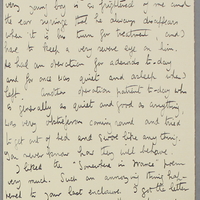 very young boy is so frightened of me and
the car string that he always disappears
when it is his turn for treatment, and I
have to keep a very severe eye on him.
He had an operation for adenoids to-day
and for once was quiet and asleep when I
left. Another operation patient to-day who
is generally as quiet and good as anything
was very obstreperous coming round and tried
to get out of bed and swore like anything.
You never know how they will behave.
I liked the "Somewhere in France" poem
very much. Such an annoying thing hap-
pened to your last enclosure. I got the letter